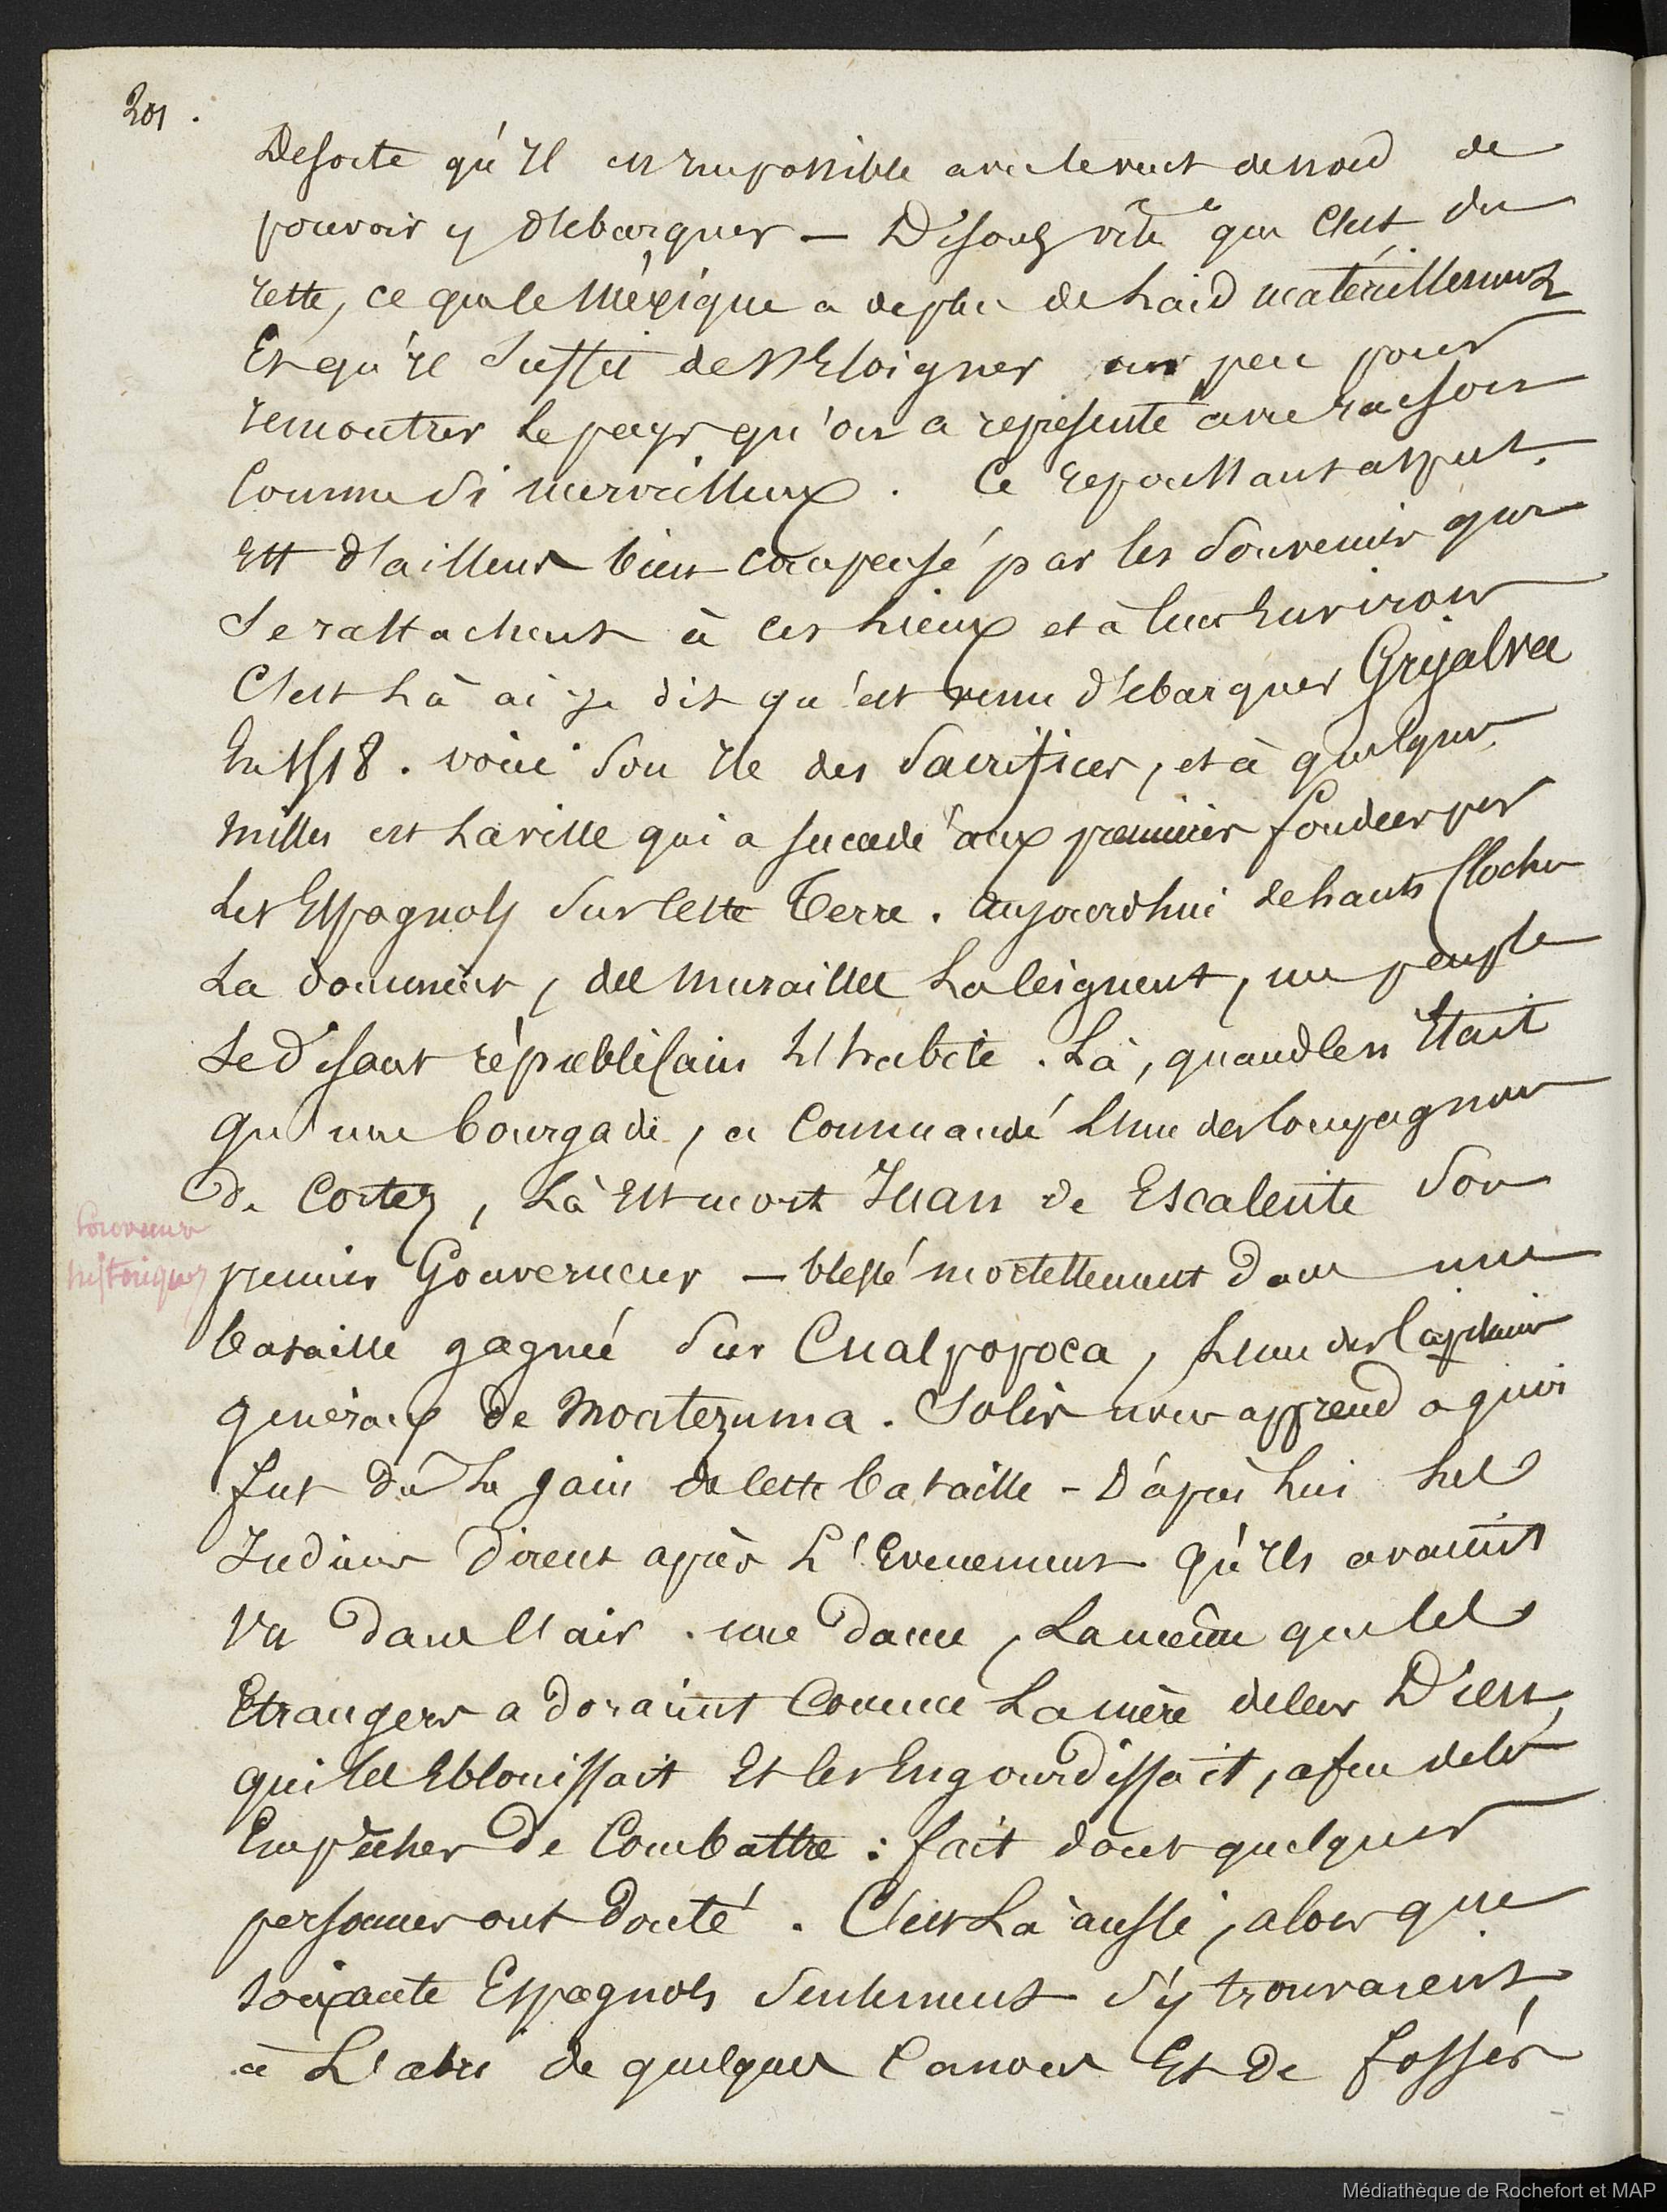 201.
Desorte qu'il est impossible avec le vent de nord de
pouvoir y débarquer — Disons vite que c'est du
reste, ce que le Méxique a de plus de laid matériellement
Et qu'il suffit de s'éloigner un peu pour
rencontrer le pays qu'on a représenté avec raison
comme si merveilleux. Ce repoussant aspect
Est d'ailleurs bien compensé par les souvenirs qui
se rattachent à ces lieux et à leurs Environs
C'est là ai-je dit qu'est venu débarquer Grijalva
En 1518. voici son île des Sacrifices, et à quelques
milles est la ville qui a succédé aux premiers fondée par
les Espagnols sur cette Terre. aujourd'hui de hauts clochers
la dominent, des murailles la ceignent, un peuple
se disant républicain l'habite. Là, quand ce n'était
qu'une bourgade, a commandé l'un des compagnons
de Cortez, là Est mort Juan de Escalente son
souvenirs
historiques
premier Gouverneur — blessé mortellement dans une
bataille gagnée sur Cualpopoca, l'un des Capitaines
généraux de Montezuma. Solis nous apprend a qui
fut dû le gain de cette bataille - D'après lui les
Indiens dirent après l'Evenement qu'ils avaient
vu dans l'air une dame, la même que les
Etrangers adoraient comme la mère de leur Dieu,
qui les Eblouissait et les Engourdissait, afin de les
Empêcher de Combattre : fait dont quelques
personnes ont douté. C'est là aussi, alors que
soixante Espagnols seulement s'y trouvaient,
à l'abri de quelques canons Et de fossés
Médiathèque de Rochefort et MAP